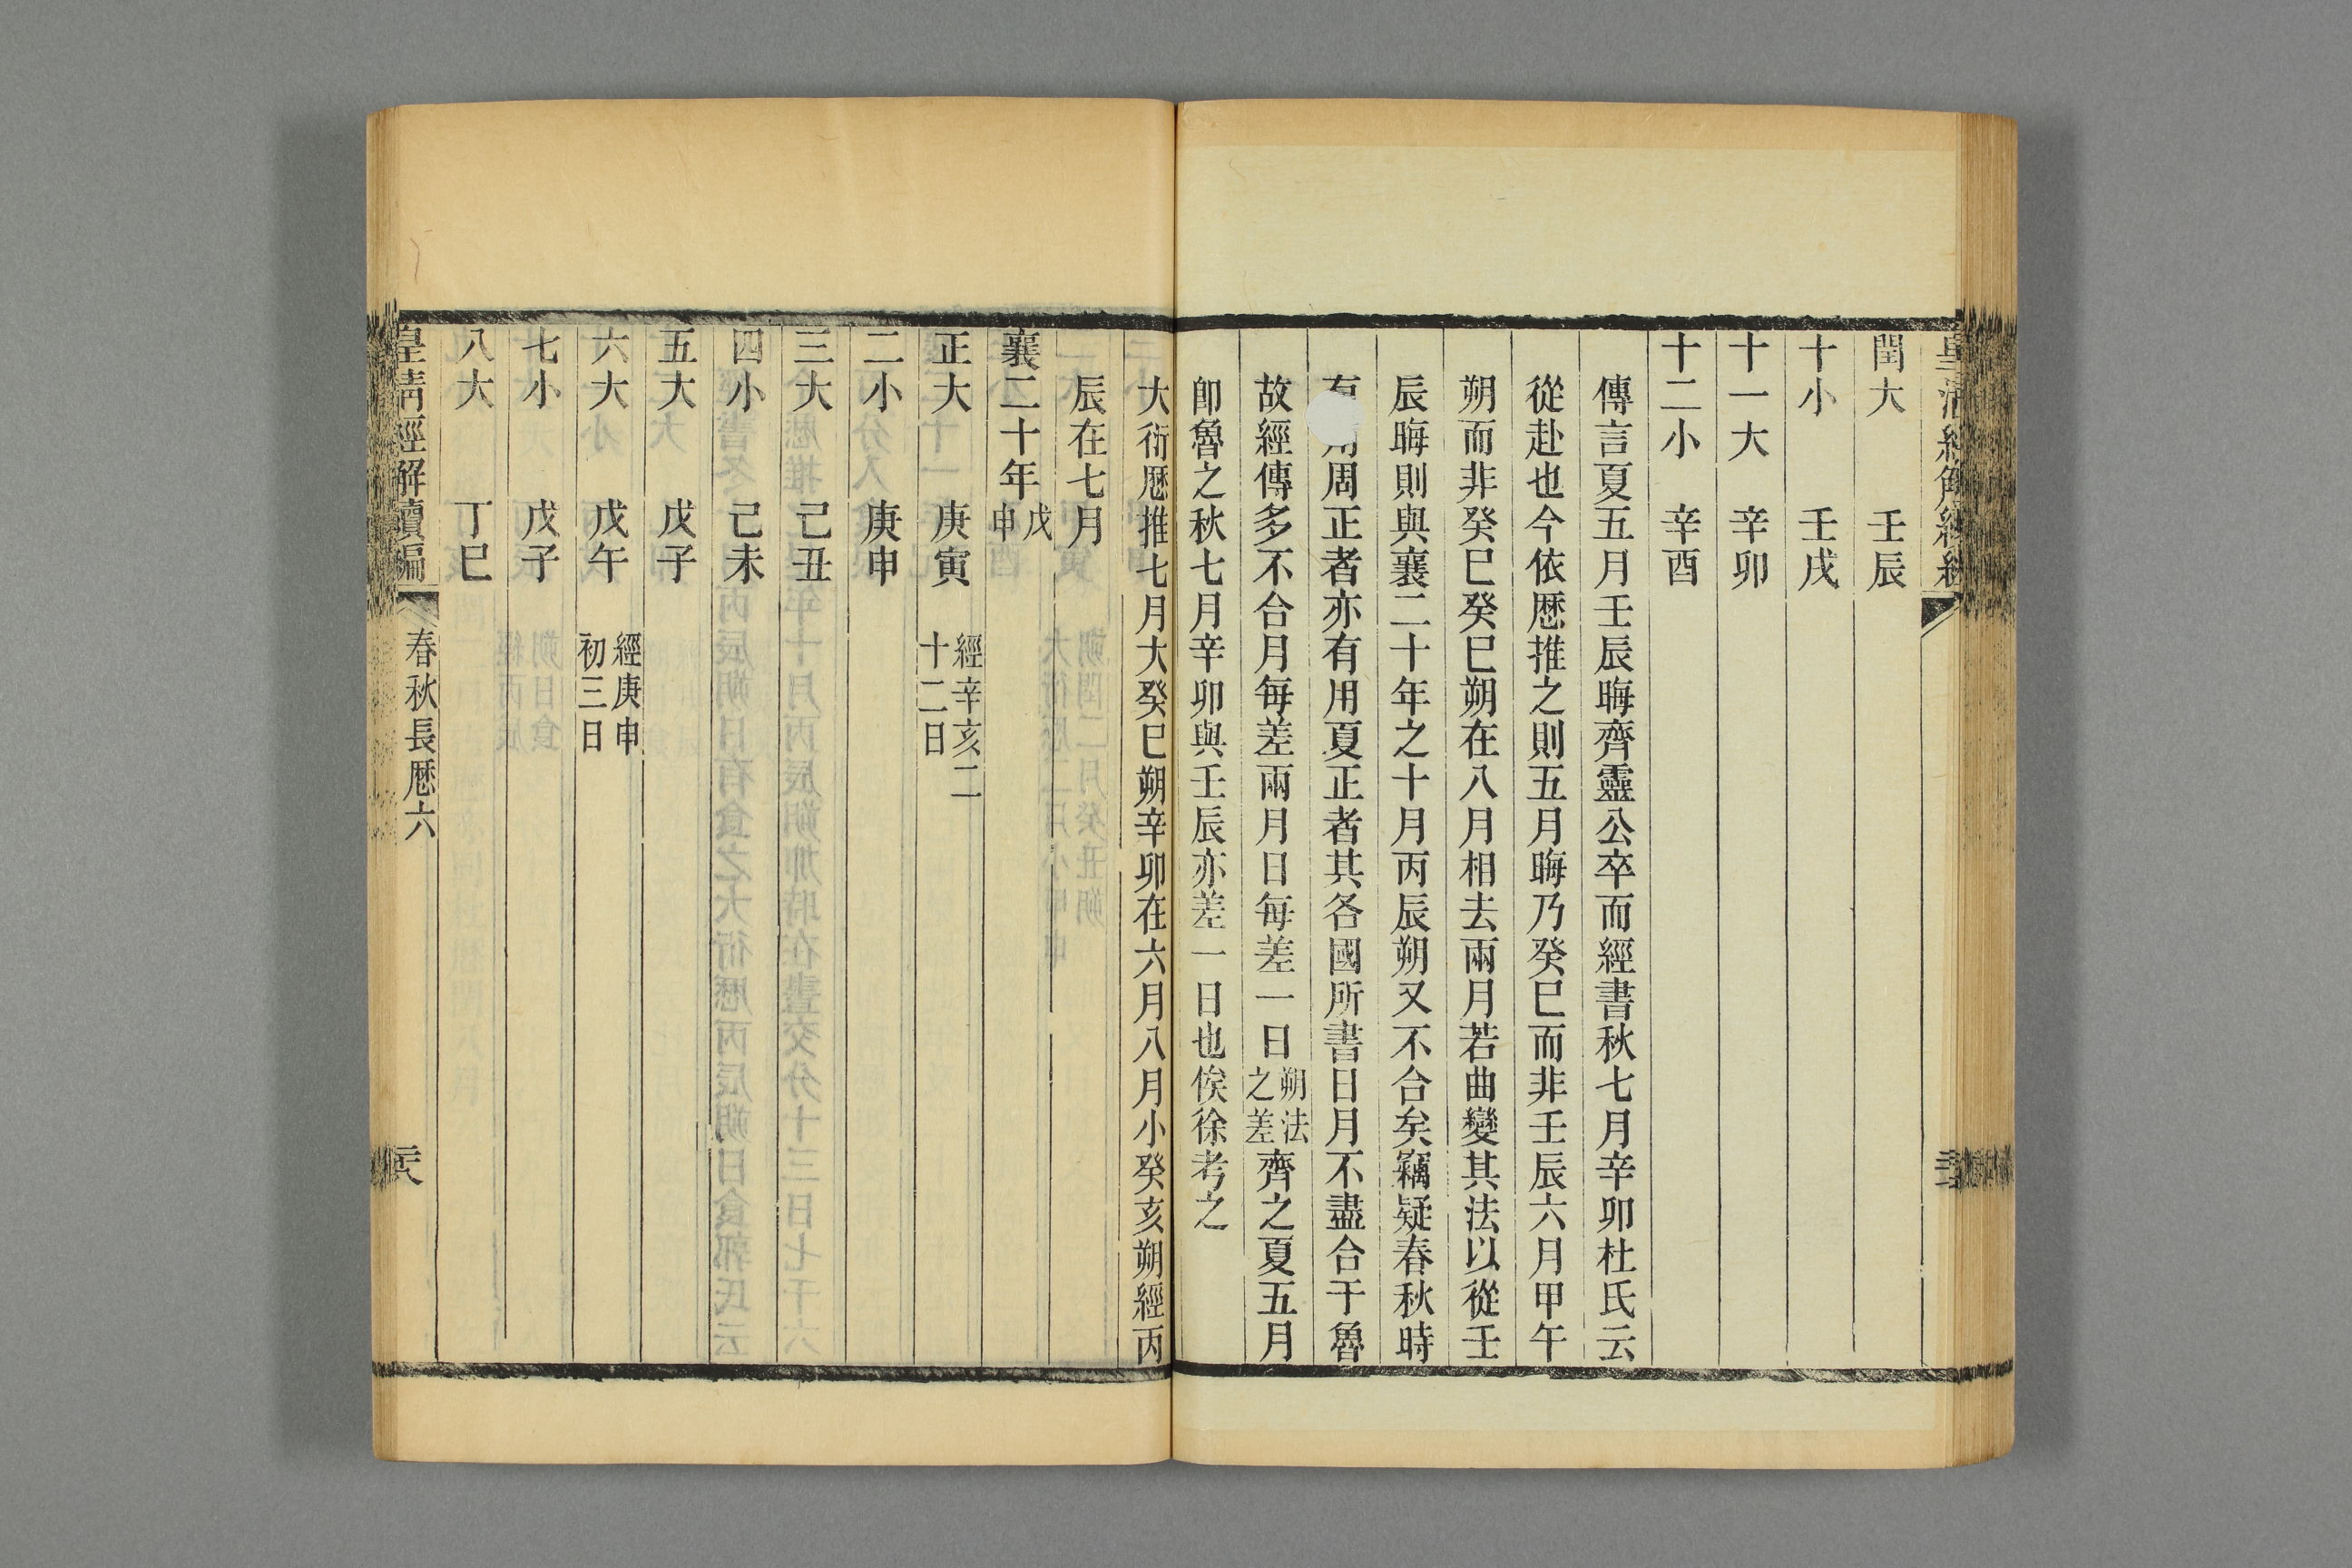 閏大 壬辰
十小 壬戌
十一大 辛卯
十二小 辛酉
傳言夏五月壬辰晦齊靈公卒而經書秋七月辛卯杜氏云
從赴也今依厯推之則五月晦乃癸巳而非壬辰六月甲午
朔而非癸巳癸巳朔在八月相去兩月若曲變其法以從壬
辰晦則與襄二十年之十月丙辰朔又不合矣竊疑春秋時
有用周正者亦有用夏正者其各國所書日月不盡合于魯
故經傳多不合月每差兩月日每差一日朔法之差齊之夏五月
卽魯之秋七月辛卯與壬辰亦差一日也俟徐考之
大衍厯推七月大癸巳朔辛卯在六月八月小癸亥朔經丙
辰在七月
襄二十年戊申
正大 庚寅 經辛亥二十二日
二小 庚申
三大 己丑
四小 己未
五大 戊子
六大 戊午 經庚申初三日
七小 戊子
八大 丁巳
皇清經解續編 春秋長厯六